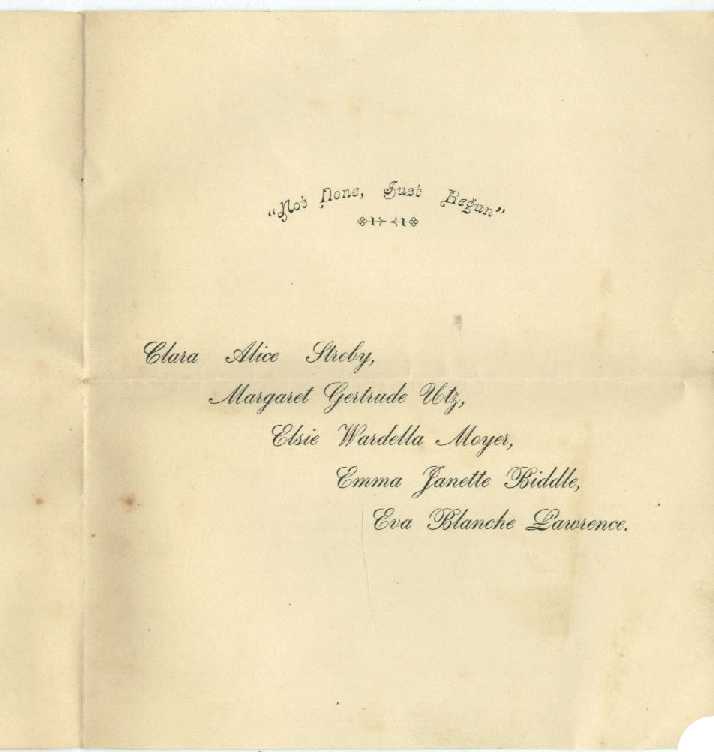 "Not Done, Just Begun"
Clara Alice Streby,
Margaret Gertrude Utz,
Elsie Wardella Moyer,
Emma Janette Biddle,
Eva Blanche Lawrence.